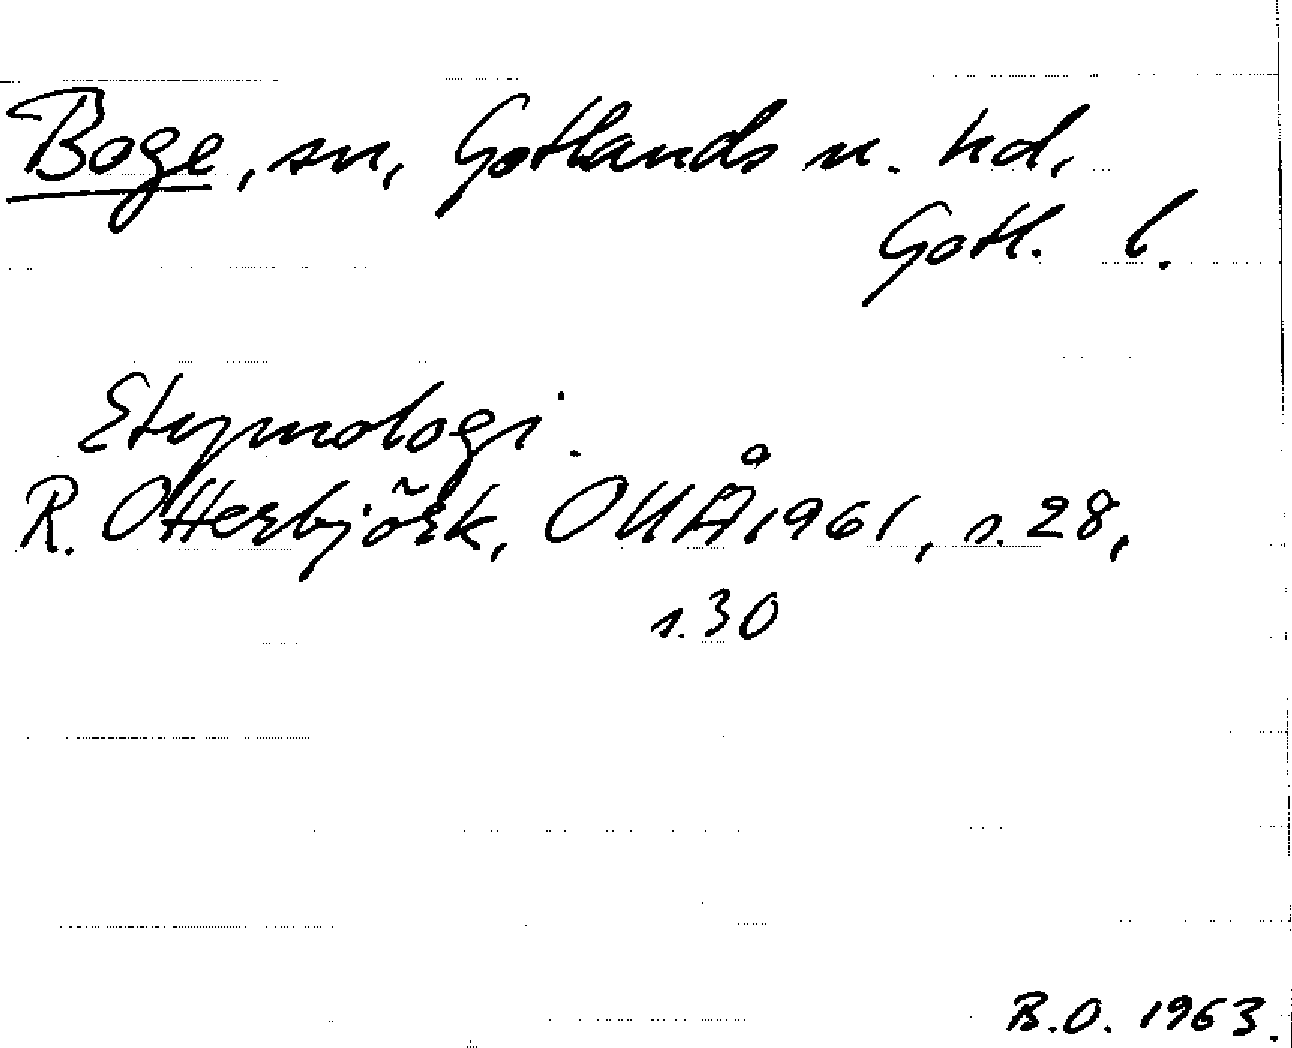 Boge, sn, Gotlands n. hd,
Gotl. l.
Etymologi.
R. Otterbjörk, OUÅ 1961, s. 28,
s. 30
B.O. 1963.